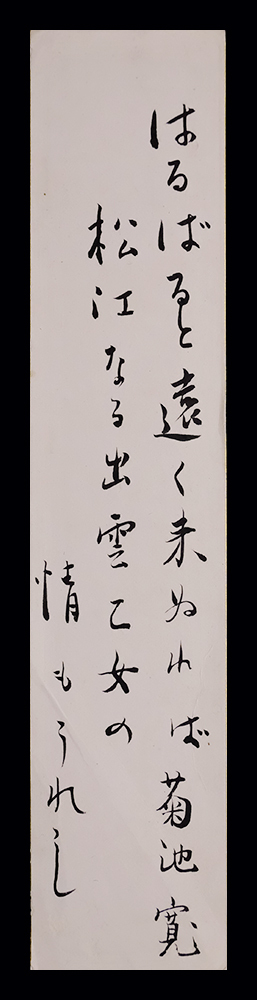 はるばると遠く来ぬれば菊池寛
松江なる出雲乙女の
情もうれし